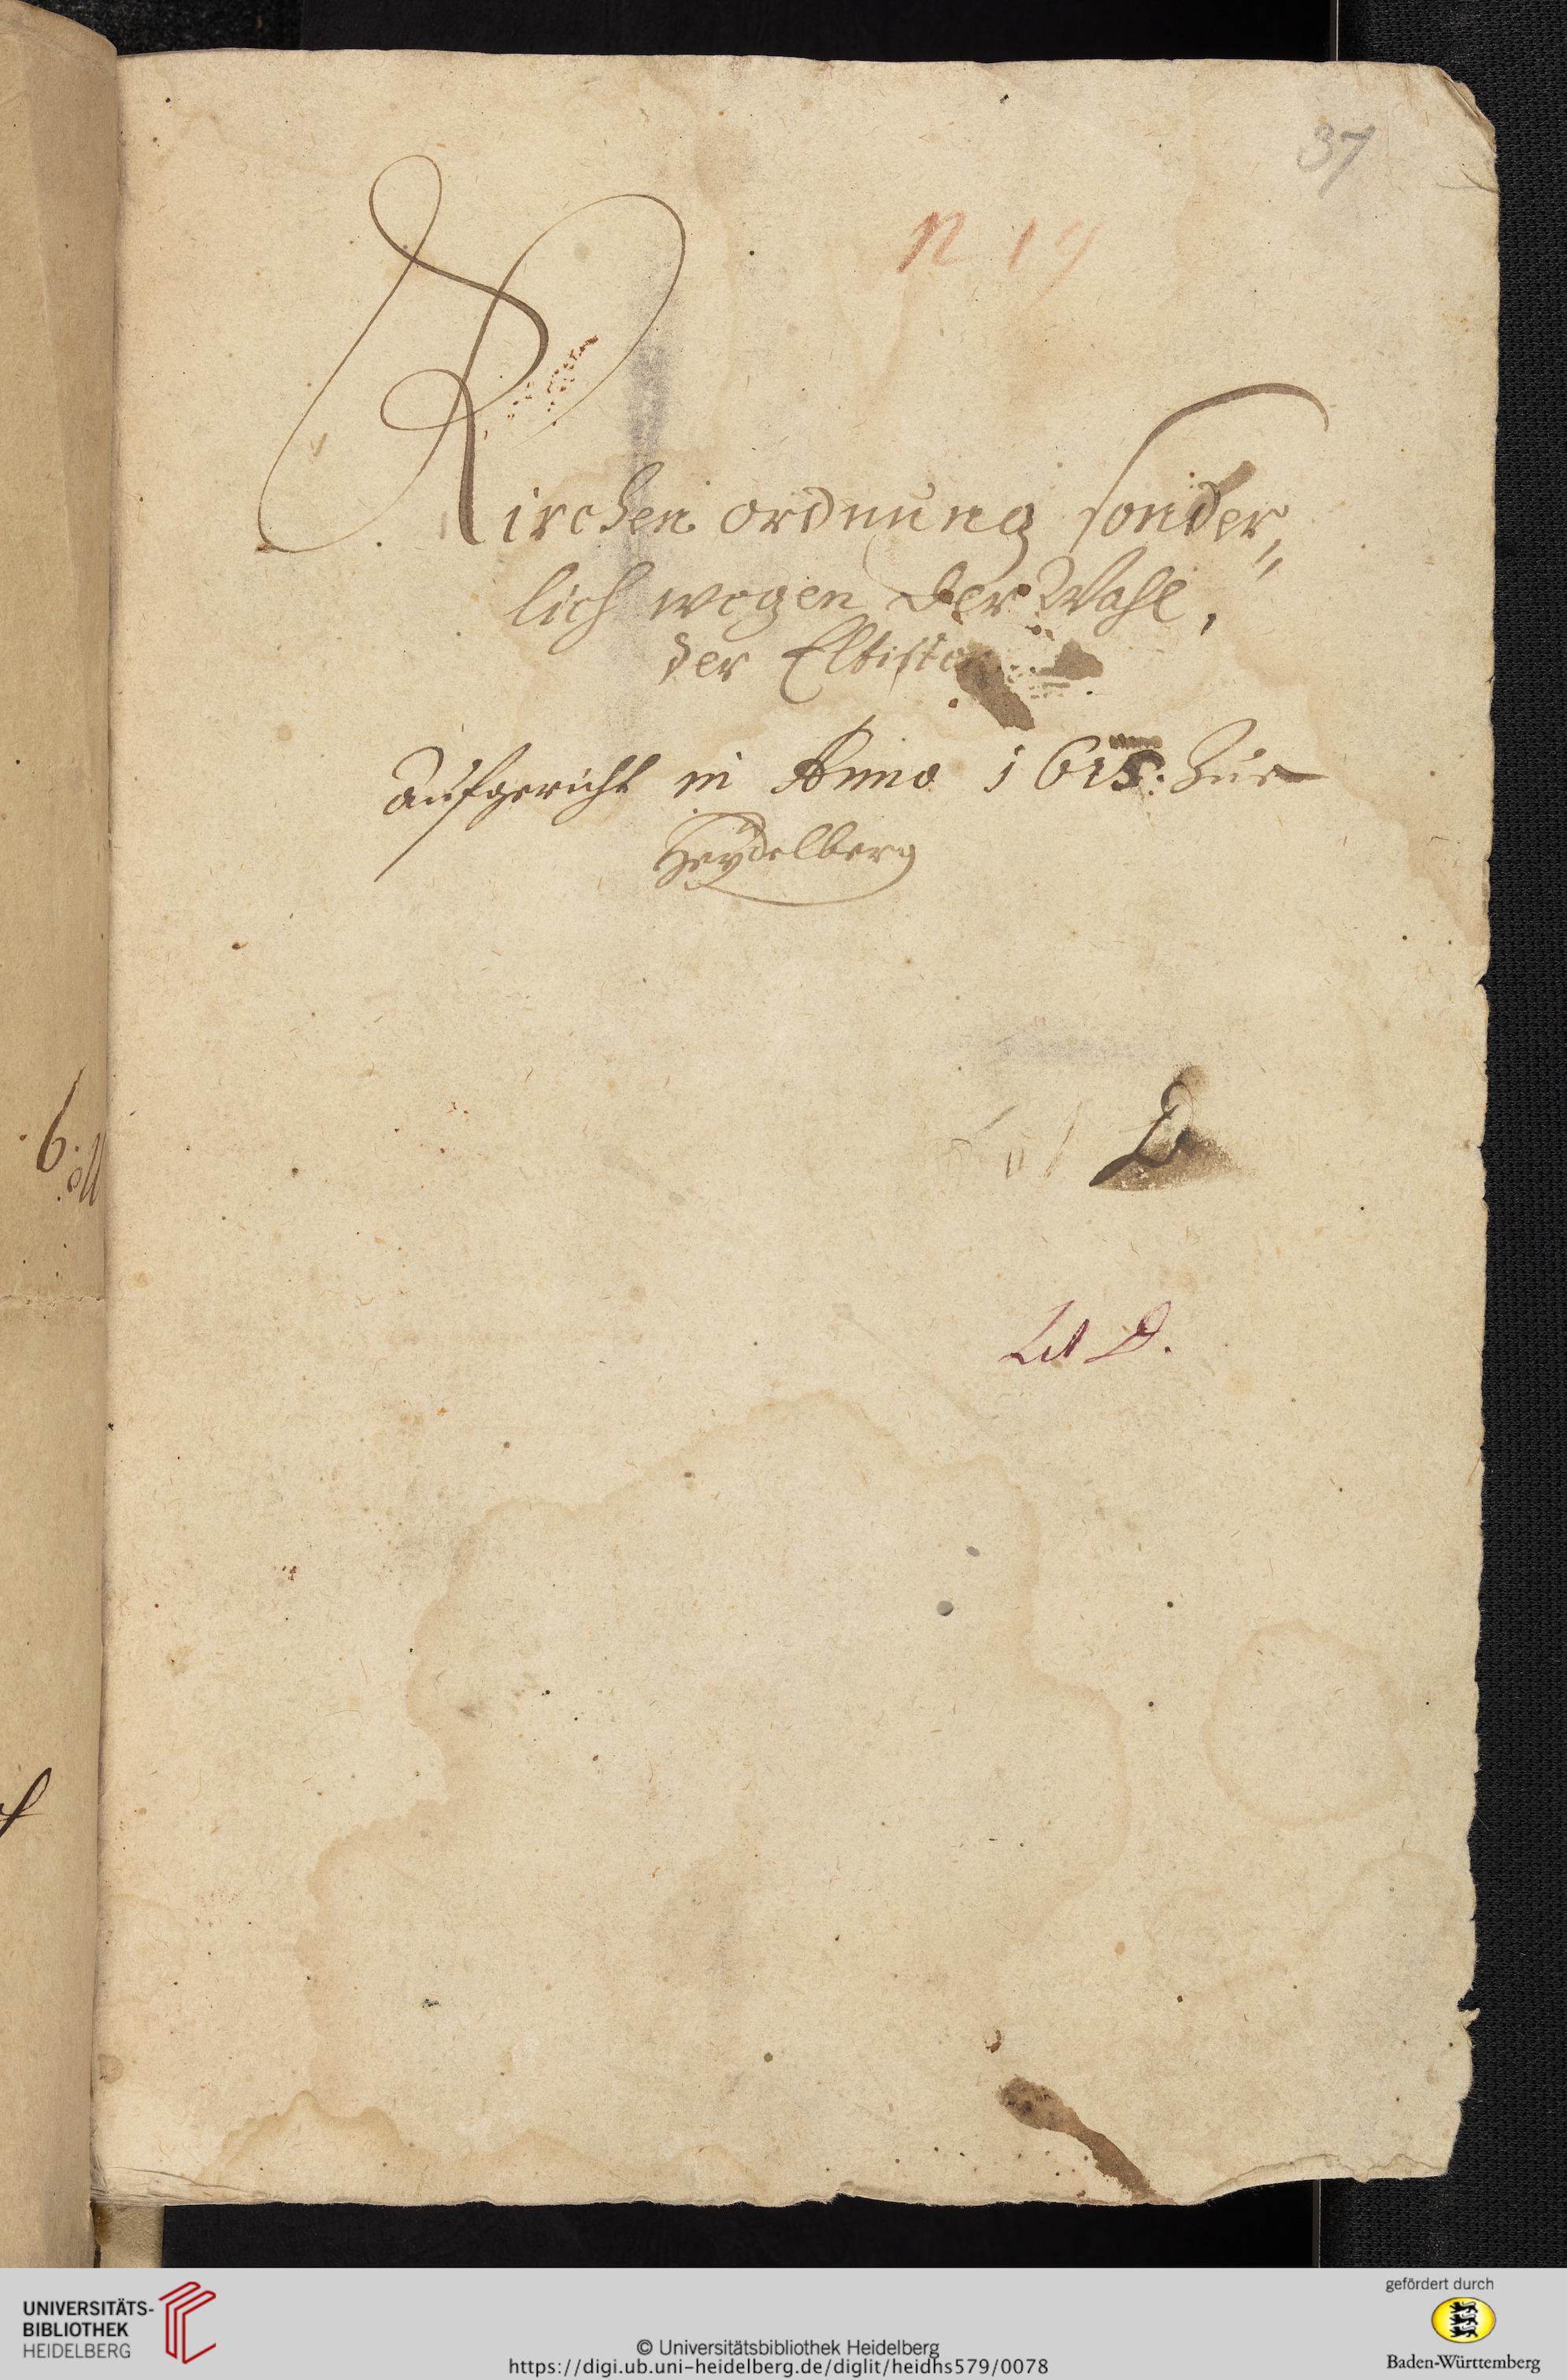 37
N 19
Kirchen ordnung sonder„
lich wegen der Wahl,
der Eltisten
aufgericht in Anno 1615: Zue
Heydelberg
D
Lit D.
6.
UNIVERSITÄTS-
BIBLIOTHEK
HEIDELBERG
© Universitätsbibliothek Heidelberg
https://digi.ub.uni-heidelberg.de/diglit/heidhs579/0078
gefördert durch
Baden-Württemberg